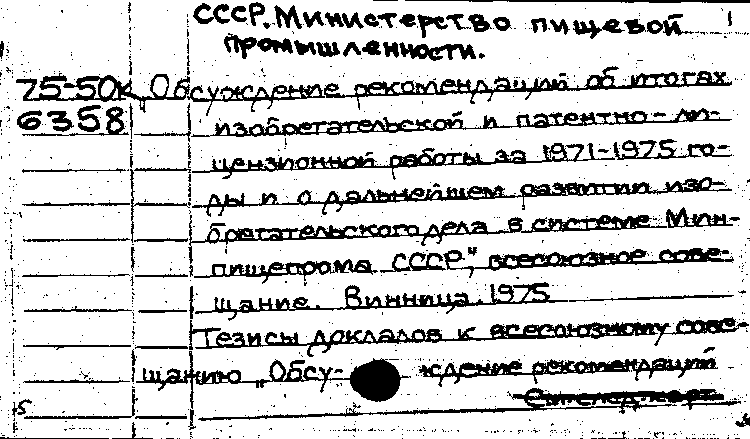 СССР. Министерство пищевой 1
промышленности.
75-50к Обсуждение рекомендаций об итогах
6358 изобретательской и патентно-ли-
цензионной работы за 1971-1975 го-
ды и о дальнейшем развитии изо-
бретательского дела в системе Мин-
пищепрома СССР", всесоюзное сове-
щание. Винница. 1975
Тезисы докладов к всесоюзному сове-
щанию „Обсу- ждение рекомендаций